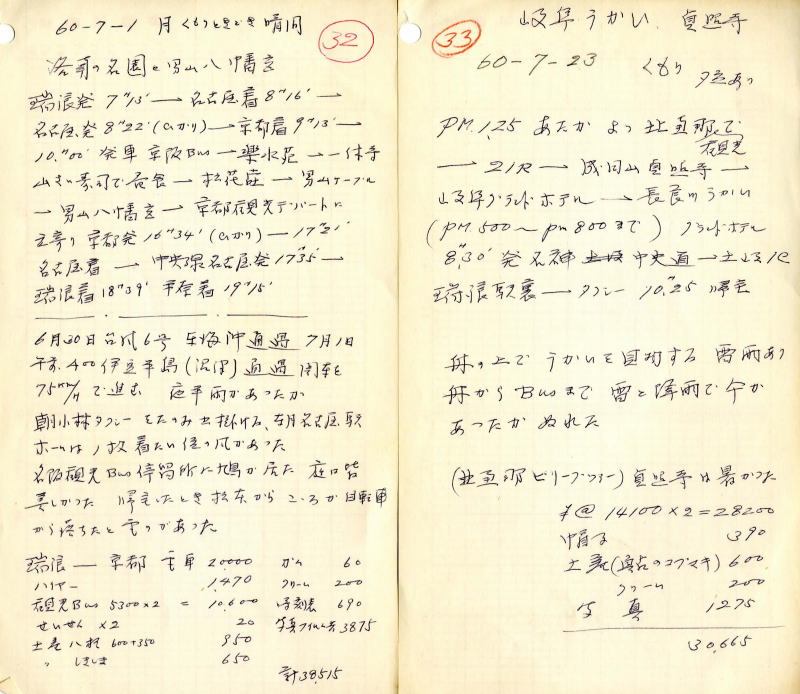 60-7-1 月 くもりときどき晴 同
32
洛南の名園と男山八幡宮
瑞浪発 7"13' → 名古屋着 8"16' →
名古屋発 8"22'(ひかり) → 京都着 9"13' →
10."00' 発車 京阪Bus → 楽水苑 → 一休寺
山さい寿司で昼食 → 松花堂 → 男山ケーブル
→ 男山八幡宮 → 京都観光デパートに
立寄り 京都発 16"34' (ひかり) → 17"21'
名古屋着 → 中央線名古屋発 17"35' →
瑞浪着 18"39' 着 19"15'
6月30日台風6号 東海沖通過 7月1日
午前.400 伊豆半島(沼津)通過 関東を
75km/H で進む 雨があったか
朝小林タクシーをたのみ出掛ける、名古屋駅
ホームは 風があった
名阪観光Bus停留所に鳩が居た 庭は皆
美しかった 帰宅したとき から ころが自転車
から落ちたと があった
瑞浪 — 京都 電車 20000 ガム 60
ハイヤー 1,470 クリーム 200
観光Bus 5300×2 = 10,600 時刻表 690
せいせん ×2 20 写真フイルム 3875
土産 八 600+350 950
〃 650
計38,515
岐阜うかい. 貞照寺
33
60-7-23 くもり 夕立あり
P.M.1.25 あたか より 北恵那で
観光
→ 21R → 成田山貞照寺 →
岐阜グランドホテル → 長良川うかい
(P.M.500〜pm800まで) グランドホテル
8"30' 発 名神 中央道 → 土岐IC
瑞浪駅裏 → タクシー 10."25 帰宅
舟の上で うかいを する 雷雨あり
舟からBusまで 雷と降雨で
あったか ぬれた
(北恵那 ツアー) 貞照寺は暑かった
¥@ 14100×2=28200
帽子 390
土産(のコブマキ) 600
クリーム 200
写真 1275
30,665